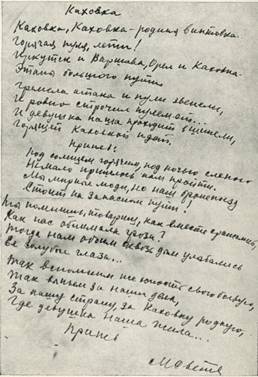 Каховка
Каховка, Каховка – родная винтовка.
Горячая пуля, лети!
Иркутск и Варшава, Орел и Каховка –
Этапы большого пути.
Гремела атака и пули звенели,
И ровно строчил пулемет...
И девушка наша проходит в шинели,
Горящей Каховкой идет.
Припев:
Под солнцем горячим, под ночью слепою
Немало пришлось нам пройти.
Мы мирные люди, но наш бронепоезд
Стоит на запасном пути!
Ты помнишь, товарищ, как вместе сражались,
Как нас обнимала гроза?
Тогда нам обоим сквозь дым улыбались
Ее голубые глаза...
Так вспомним же юность свою боевую,
Так выпьем за наши дела,
За нашу страну, за Каховку родную,
Где девушка наша жила...
Припев
М. Светл